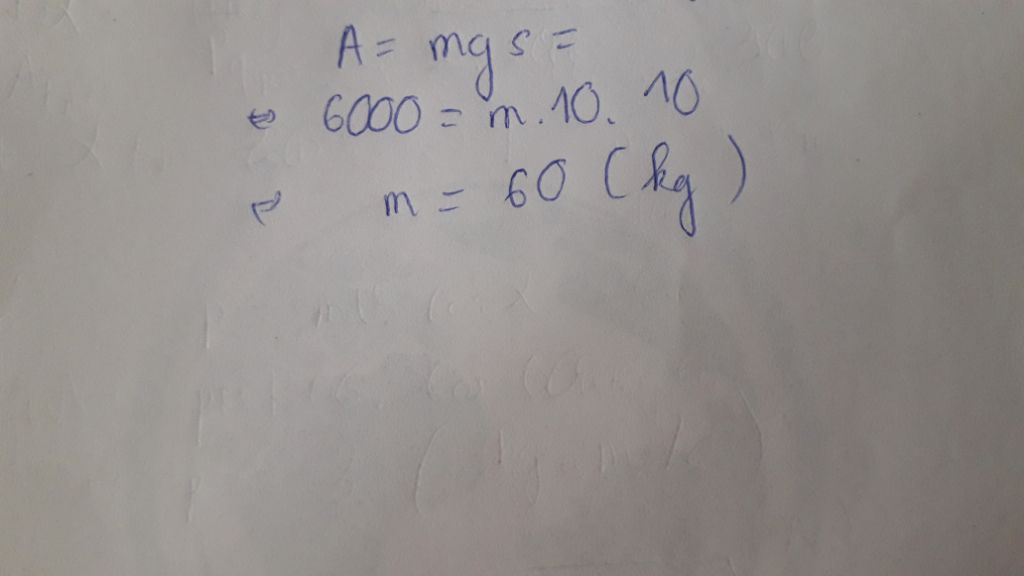 A = mgs =
⇔ 6000 = m.10.10
⇔ m = 60 (kg)